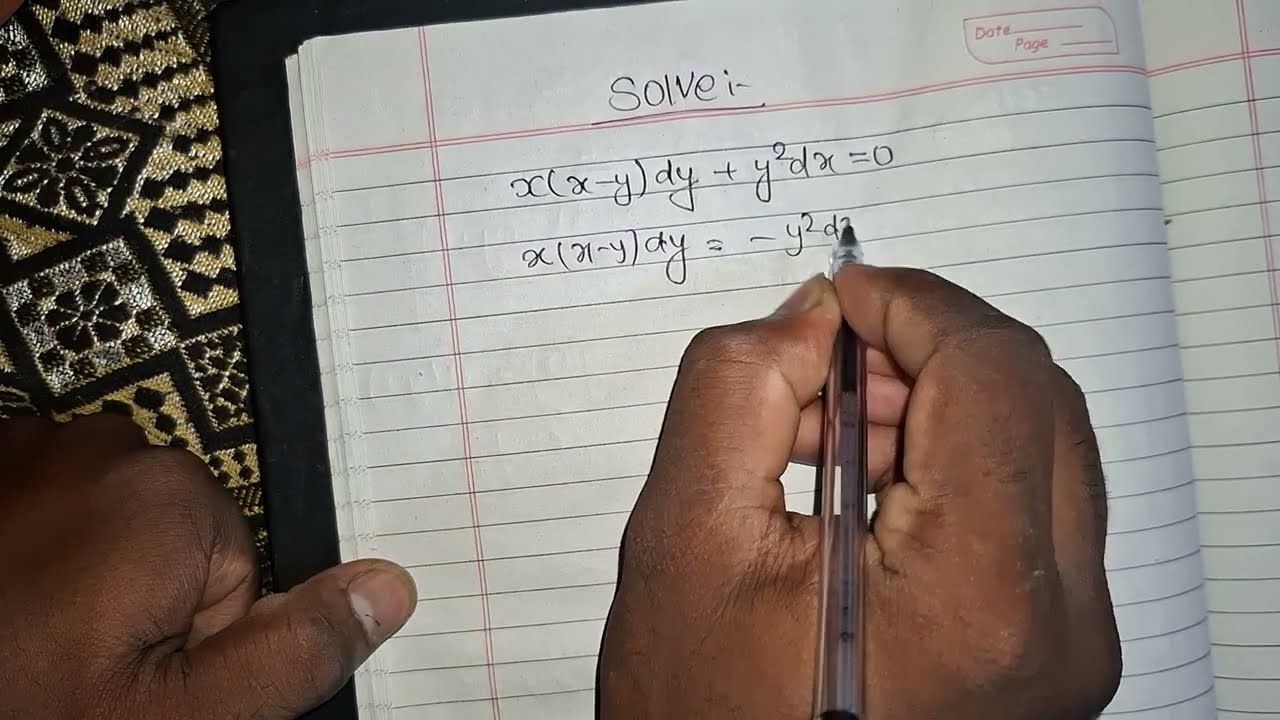 Date
Page
Solve:-
x(x-y)dy + y²dx = 0
x(x-y)dy = - y²dx